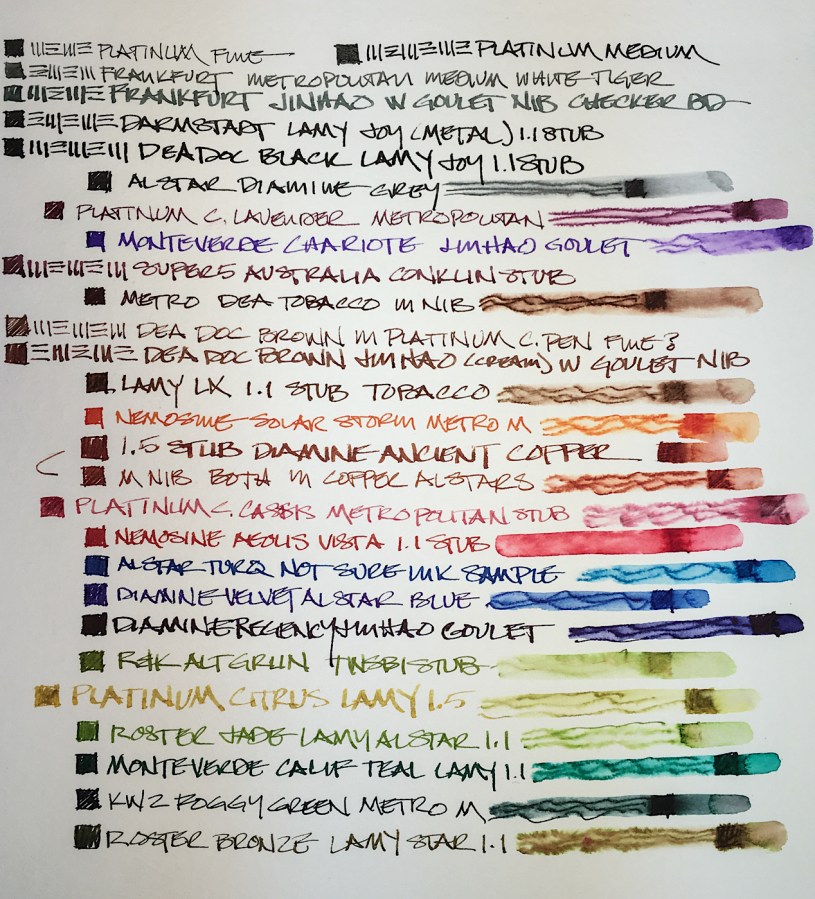 PLATINUM FINE PLATINUM MEDIUM
FRANKFURT METROPOLITAN MEDIUM WHITE TIGER
FRANKFURT JINHAO W GOULET NIB CHECKER BD
DARMSTADT LAMY JOY (METAL) 1.1 STUB
DEA DOC BLACK LAMY JOY 1.1 STUB
ALSTAR DIAMINE GREY
PLATINUM C. LAVENDER METROPOLITAN
MONTEVERDE CHARIOTE JINHAO GOULET
SUPER5 AUSTRALIA CONKLIN STUB
METRO DEA TOBACCO M NIB
DEA DOC BROWN IN PLATINUM C. PEN FINE?
DEA DOC BROWN JINHAO (CREAM) W GOULET NIB
LAMY LX 1.1 STUB TOBACCO
NEMOSINE SOLAR STORM METRO M
1.5 STUB DIAMINE ANCIENT COPPER
M NIB BOTH IN COPPER ALSTARS
PLATINUM C. CASSIS METROPOLITAN STUB
NEMOSINE AEOLIS VISTA 1.1 STUB
ALSTAR TURQ NOT SURE INK SAMPLE
DIAMINE VELVET ALSTAR BLUE
DIAMINE REGENCY JINHAO GOULET
R&K ALT GRUN TWSBI STUB
PLATINUM CITRUS LAMY 1.5
ROSTER JADE LAMY ALSTAR 1.1
MONTEVERDE CALIF TEAL LAMY 1.1
KWZ FOGGY GREEN METRO M
ROSTER BRONZE LAMY STAR 1.1